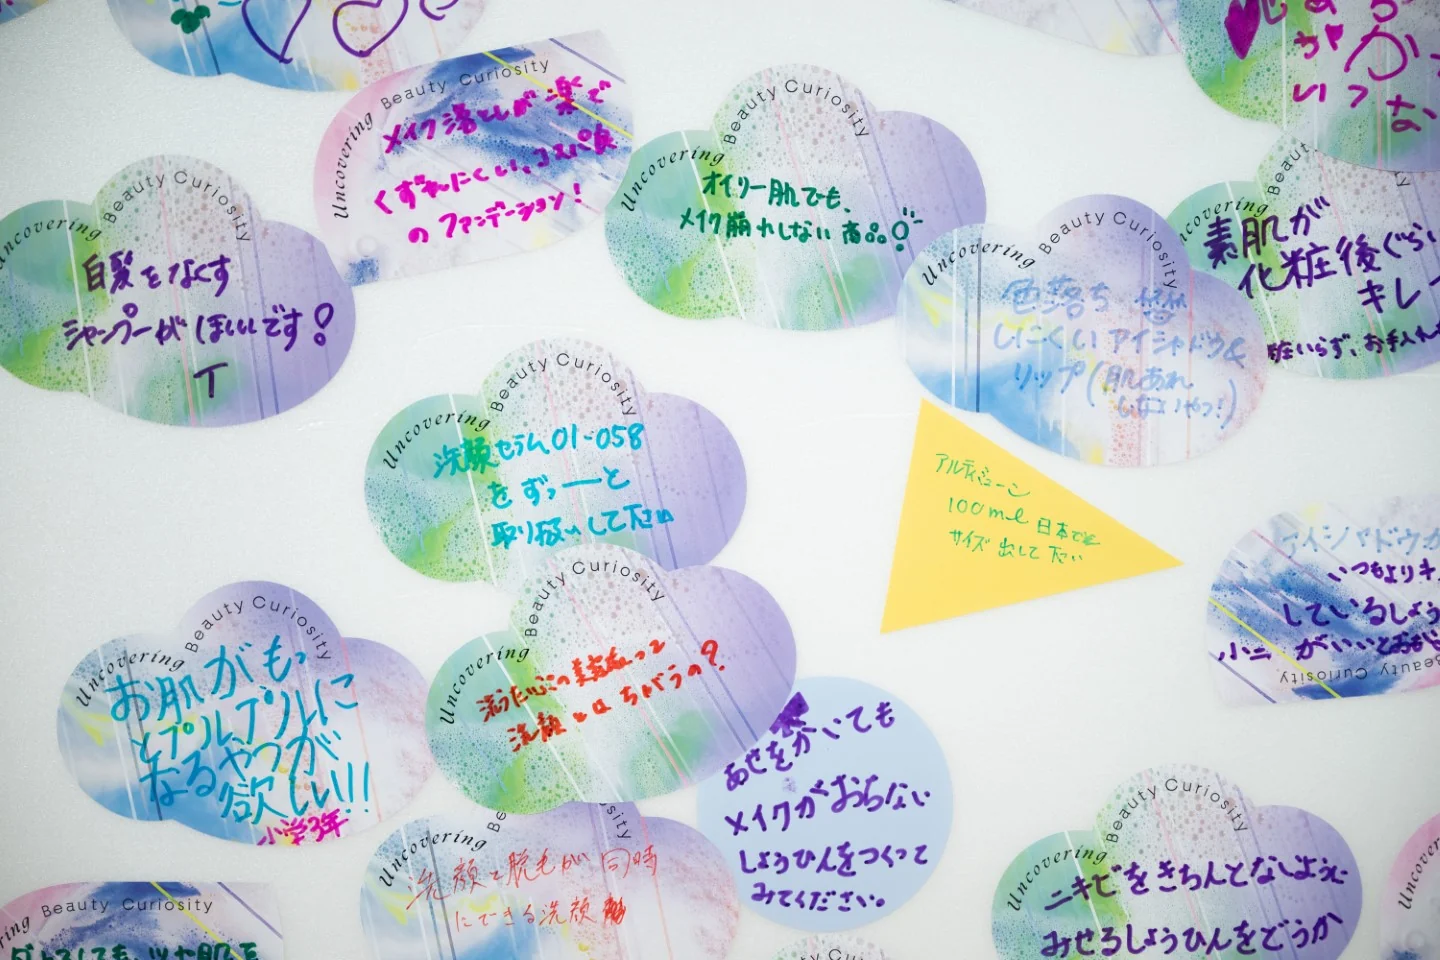 Uncovering Beauty Curiosity
メイク落としが楽で
くずれにくい、コスパ良
の ファンデーション!
Uncovering Beauty Curiosity
オイリー肌でも、
メイク崩れしない商品
Uncovering Beauty Curiosity
白髪をなくす
シャンプーが ほしいです!
T
Uncovering Beauty Curiosity
色落ち
しにくいアイシャドウ&
リップ(肌あれ
しないやつ!)
Uncovering Beaut
素肌が
化粧後ぐらい
キレ
粧いらず、お手入れ
が
いつ
な
Uncovering Beauty Curiosity
洗顔せらん01-058
をずっーと
取り扱いして下さい
アルティミューン
100ml 日本でも
サイズ 出して 下さい
アイシャドウが
いつもよりキ
しているしょう
がいいとおも
Beauty Curiosity
Uncovering Beauty Curiosity
お肌がもっ
とプルプルに
なるやつが
欲しい!!
小学3年
Uncovering Beauty Curiosity
洗顔とは ちがうの?
あせをかいても
メイクがおちない
しょうひんをつくって
みてください。
Uncovering Be sity
洗顔と脱毛が同時
にできる洗顔
Uncovering Beauty Curiosity
ニキビをきちんとなしょうに
みせるしょうひんをどうか
ring Beauty Curiosity
しても、ツヤ肌を